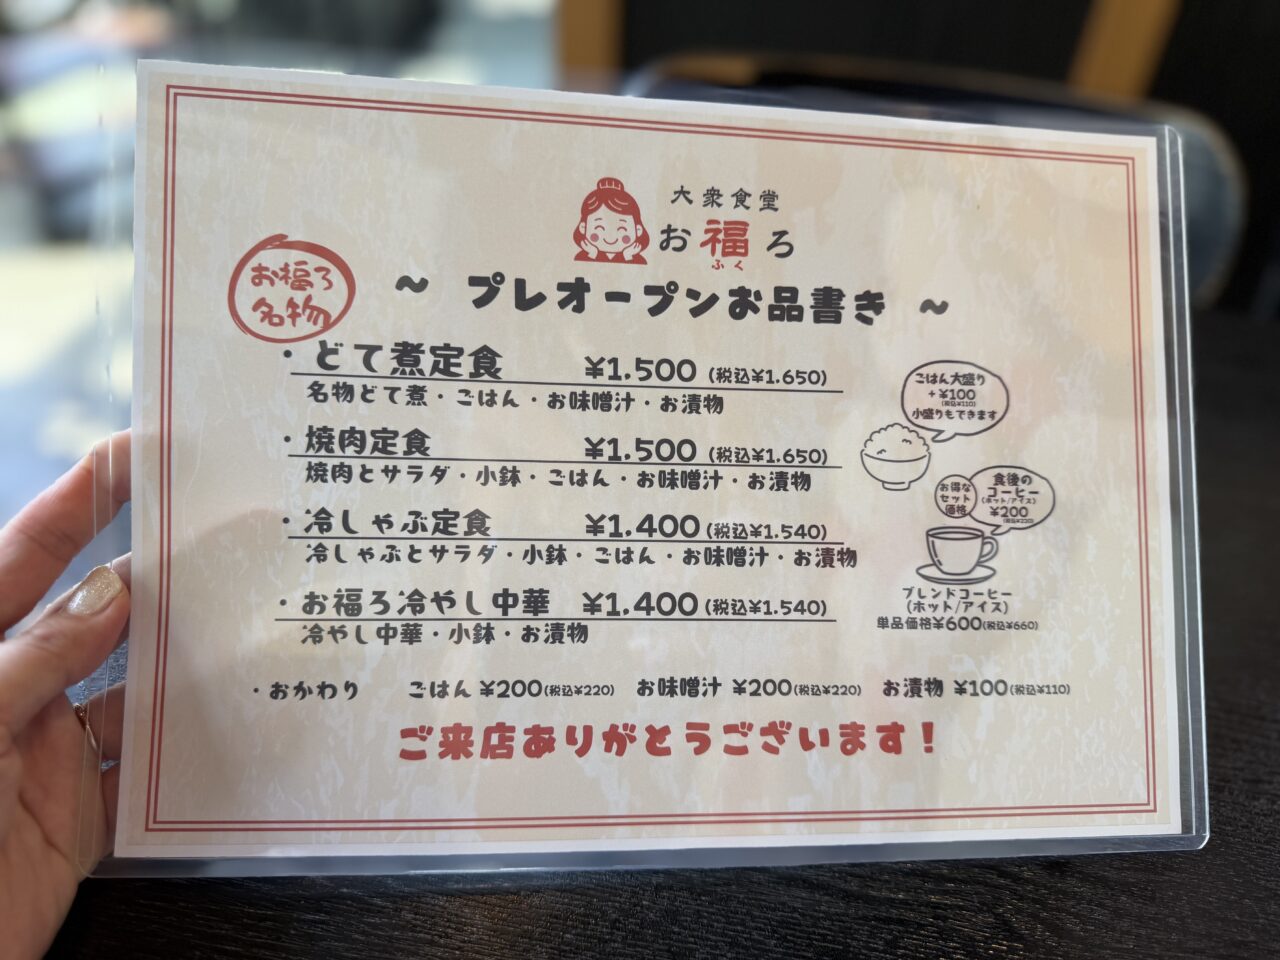 大衆食堂
お福ろ
ふく
お福ろ
名物
~ プレオープンお品書き ~
・どて煮定食 ¥1.500 (税込¥1.650)
名物どて煮・ごはん・お味噌汁・お漬物
・焼肉定食 ¥1.500 (税込¥1.650)
焼肉とサラダ・小鉢・ごはん・お味噌汁・お漬物
・冷しゃぶ定食 ¥1.400 (税込¥1.540)
冷しゃぶとサラダ・小鉢・ごはん・お味噌汁・お漬物
・お福ろ冷やし中華 ¥1.400 (税込¥1.540)
冷やし中華・小鉢・お漬物
ごはん大盛り
+¥100
(税込¥110)
小盛りもできます
お得な
セット
価格
食後の
コーヒー
(ホット/アイス)
¥200
(税込¥220)
ブレンドコーヒー
(ホット/アイス)
単品価格¥600(税込¥660)
・おかわり ごはん ¥200(税込¥220) お味噌汁 ¥200(税込¥220) お漬物 ¥100(税込¥110)
ご来店ありがとうございます!